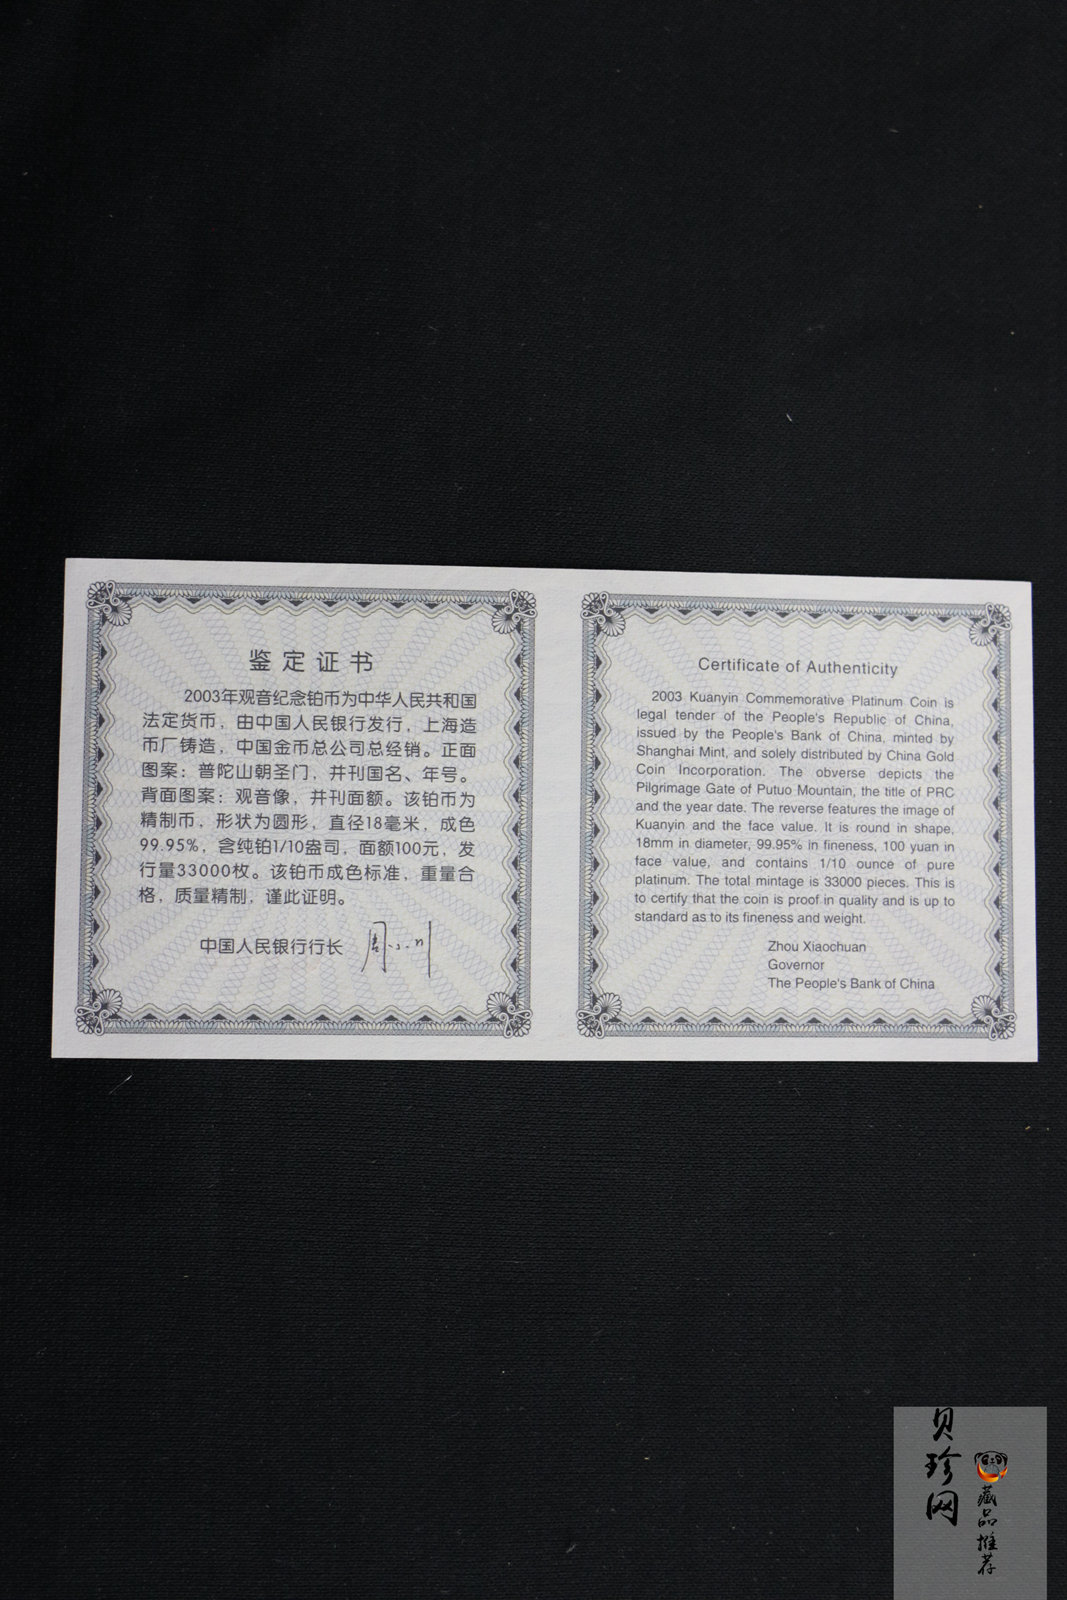 鉴定证书
2003年观音纪念铂币为中华人民共和国
法定货币，由中国人民银行发行，上海造
币厂铸造，中国金币总公司总经销。正面
图案：普陀山朝圣门，并刊国名、年号。
背面图案：观音像，并刊面额。该铂币为
精制币，形状为圆形，直径18毫米，成色
99.95%，含纯铂1/10盎司，面额100元，发
行量33000枚。该铂币成色标准，重量合
格，质量精制，谨此证明。
中国人民银行行长 周小川
Certificate of Authenticity
2003 Kuanyin Commemorative Platinum Coin is
legal tender of the People's Republic of China,
issued by the People's Bank of China, minted by
Shanghai Mint, and solely distributed by China Gold
Coin Incorporation. The obverse depicts the
Pilgrimage Gate of Putuo Mountain, the title of PRC
and the year date. The reverse features the image of
Kuanyin and the face value. It is round in shape,
18mm in diameter, 99.95% in fineness, 100 yuan in
face value, and contains 1/10 ounce of pure
platinum. The total mintage is 33000 pieces. This is
to certify that the coin is proof in quality and is up to
standard as to its fineness and weight.
Zhou Xiaochuan
Governor
The People's Bank of China
贝珍网
藏品推荐